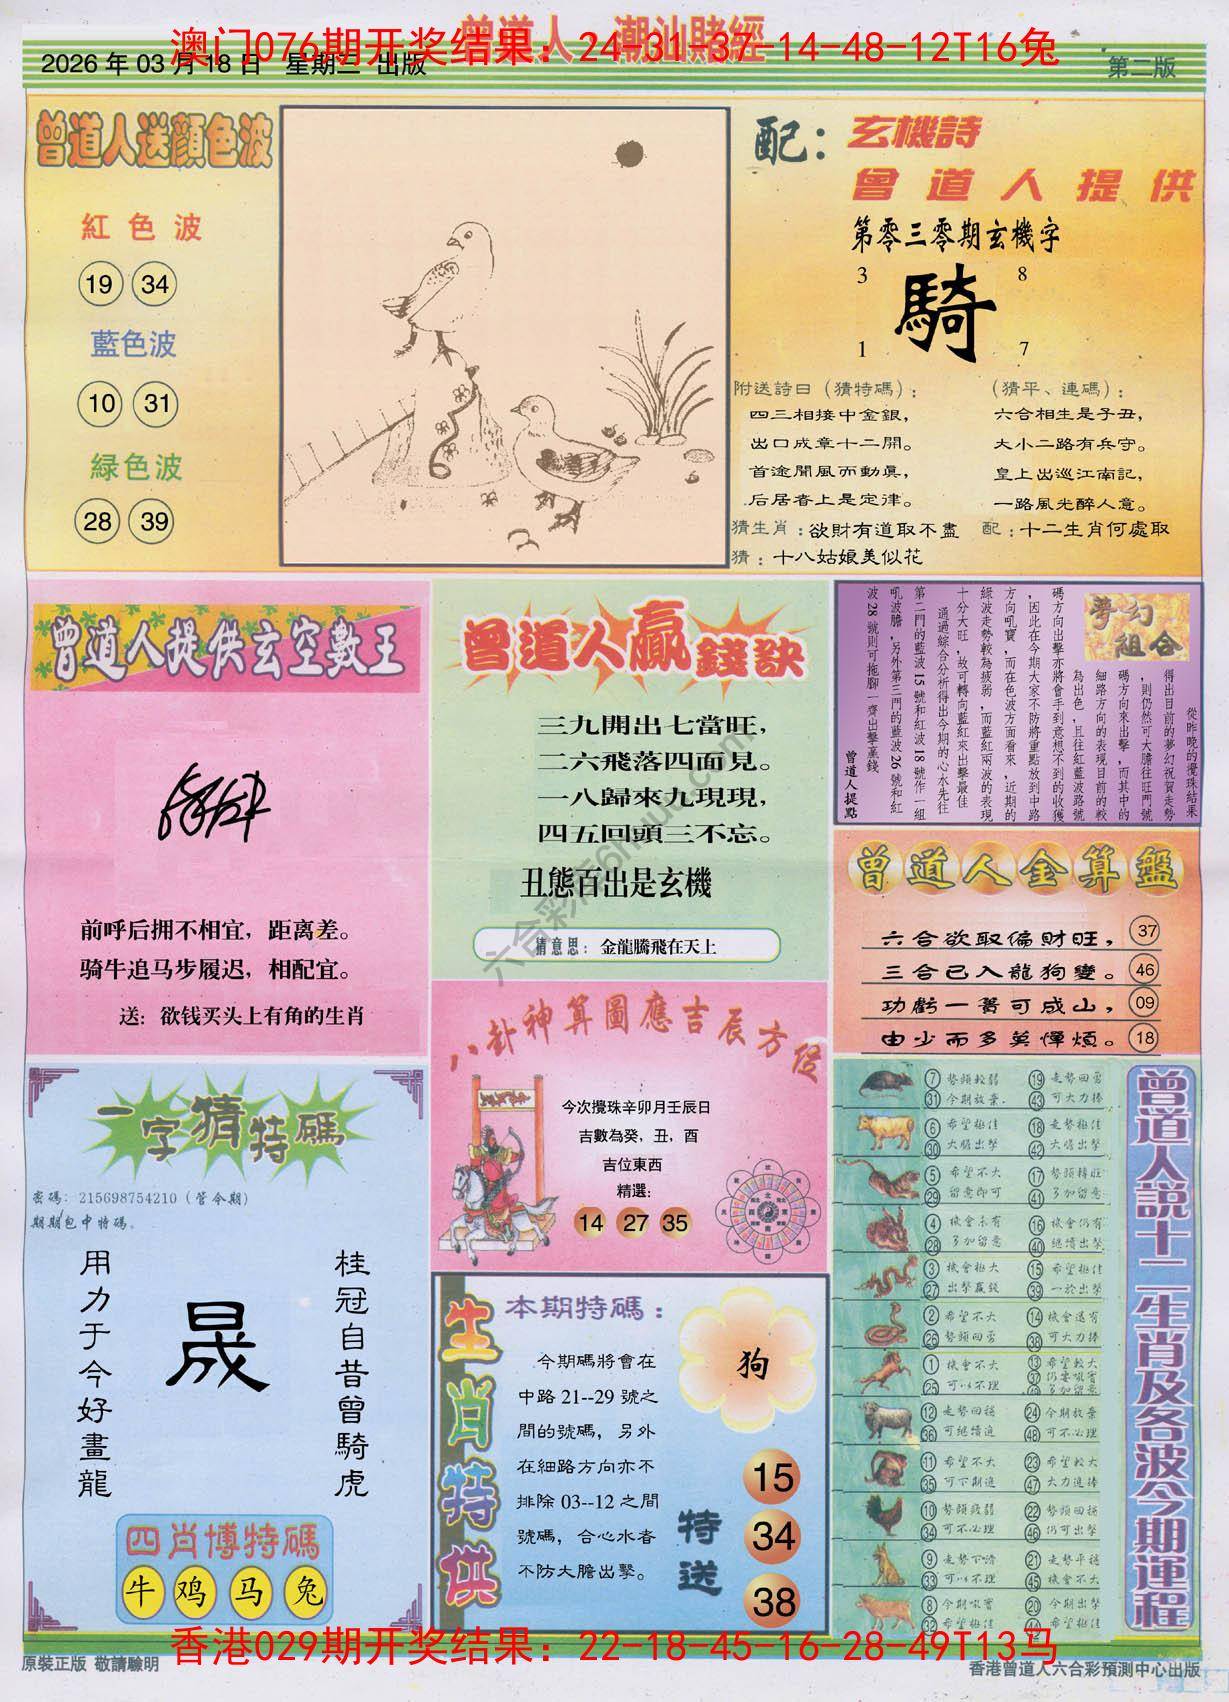 曾道人·潮汕賭經
澳门076期开奖结果：24-31-37-14-48-12T16兔
2026 年 03 月 18 日 星期三 出版
第二版
曾道人送顏色波
紅色波
19 34
藍色波
10 31
緑色波
28 39
配：玄機詩
曾道人提供
第零三零期玄機字
3 8
騎
1 7
附送詩曰（猜特碼）：
四三相接中金銀，
出口成章十二開。
首途聞風而動真，
后居者上是定律。
（猜平、連碼）：
六合相生是子丑，
大小二路有兵守。
皇上出巡江南記，
一路風光醉人意。
猜生肖：欲財有道取不盡 配：十二生肖何處取
猜：十八姑娘美似花
曾道人提供玄空數王
前呼后拥不相宜，距离差。
骑牛追马步履迟，相配宜。
送：欲钱买头上有角的生肖
曾道人贏錢訣
三九開出七當旺，
二六飛落四面見。
一八歸來九現現，
四五回頭三不忘。
丑態百出是玄機
猜意思：金龍騰飛在天上
夢幻組合
從昨晚的攪珠結果
得出目前的夢幻祝賀走勢
，則仍然可大膽往旺門號
碼方向來出擊，而其中的
細路方向的表現目前的較
為出色，且往紅藍波路號
碼方向出擊亦將會手到意想不到的收獲
，因此在今期大家不防將重點放到中路
方向吼寶，而在色波方面看來，近期的
綠波走勢較為疲弱，而藍紅兩波的表現
十分大旺，故可轉向藍紅來出擊最佳
通過綜合分析得出今期的心水先往
第二門的藍波 15 號和紅波 18 號作一組
吼波膽，另外第三門的藍波 26 號和紅
波 28 號則可拖腳一齊出擊贏錢
曾道人提點
曾道人金算盤
六合欲取偏財旺， 37
三合已入龍狗變。 46
功虧一簣可成山， 09
由少而多莫憚煩。 18
八卦神算圖應吉辰方位
今次攪珠辛卯月壬辰日
吉數為癸，丑，酉
吉位東西
精選：
14 27 35
一字猜特碼
密碼：215698754210（管今期）
期期包中特碼。
桂冠自昔曾騎虎
晟
用力于今好畫龍
四肖博特碼
牛 鸡 马 兔
生肖特供
本期特碼：
今期碼將會在
中路 21--29 號之
間的號碼，另外
在細路方向亦不
排除 03--12 之間
號碼，合心水者
不防大膽出擊。
狗
特送
15
34
38
曾道人説十二生肖及各波今期運程
7 勢頭較弱 19 走勢回勇
31 今期放棄 43 可大力捧
6 希望極佳 18 走勢極佳
30 大膽出擊 42 大膽出擊
5 希望不大 17 勢頭轉旺
29 留意即可 41 多加留意
4 機會未有 16 機會仍有
28 多加留意 40 繼續出擊
3 機會極大 15 希望極佳
27 出擊贏錢 39 一於出擊
2 希望不大 14 機會還有
26 勢頭回勇 38 可大力捧
1 機會不大 13 希望較大
25 可以不理 37 仍要吼實
多加留意
12 走勢回穩 24 今期放棄
36 可繼續追 48 可不必理
11 希望不大 23 希望較大
35 可下期追 47 大力追捧
10 勢頭疲弱 22 勢頭回穩
34 可不必理 46 仍可出擊
9 走勢下滑 21 走勢平穩
33 可以不理 45 機會不大
8 今期吼實 20 今期出擊
32 希望極佳 44 希望極佳
香港029期开奖结果：22-18-45-16-28-49T13马
原裝正版 敬請驗明
香港曾道人六合彩預測中心出版